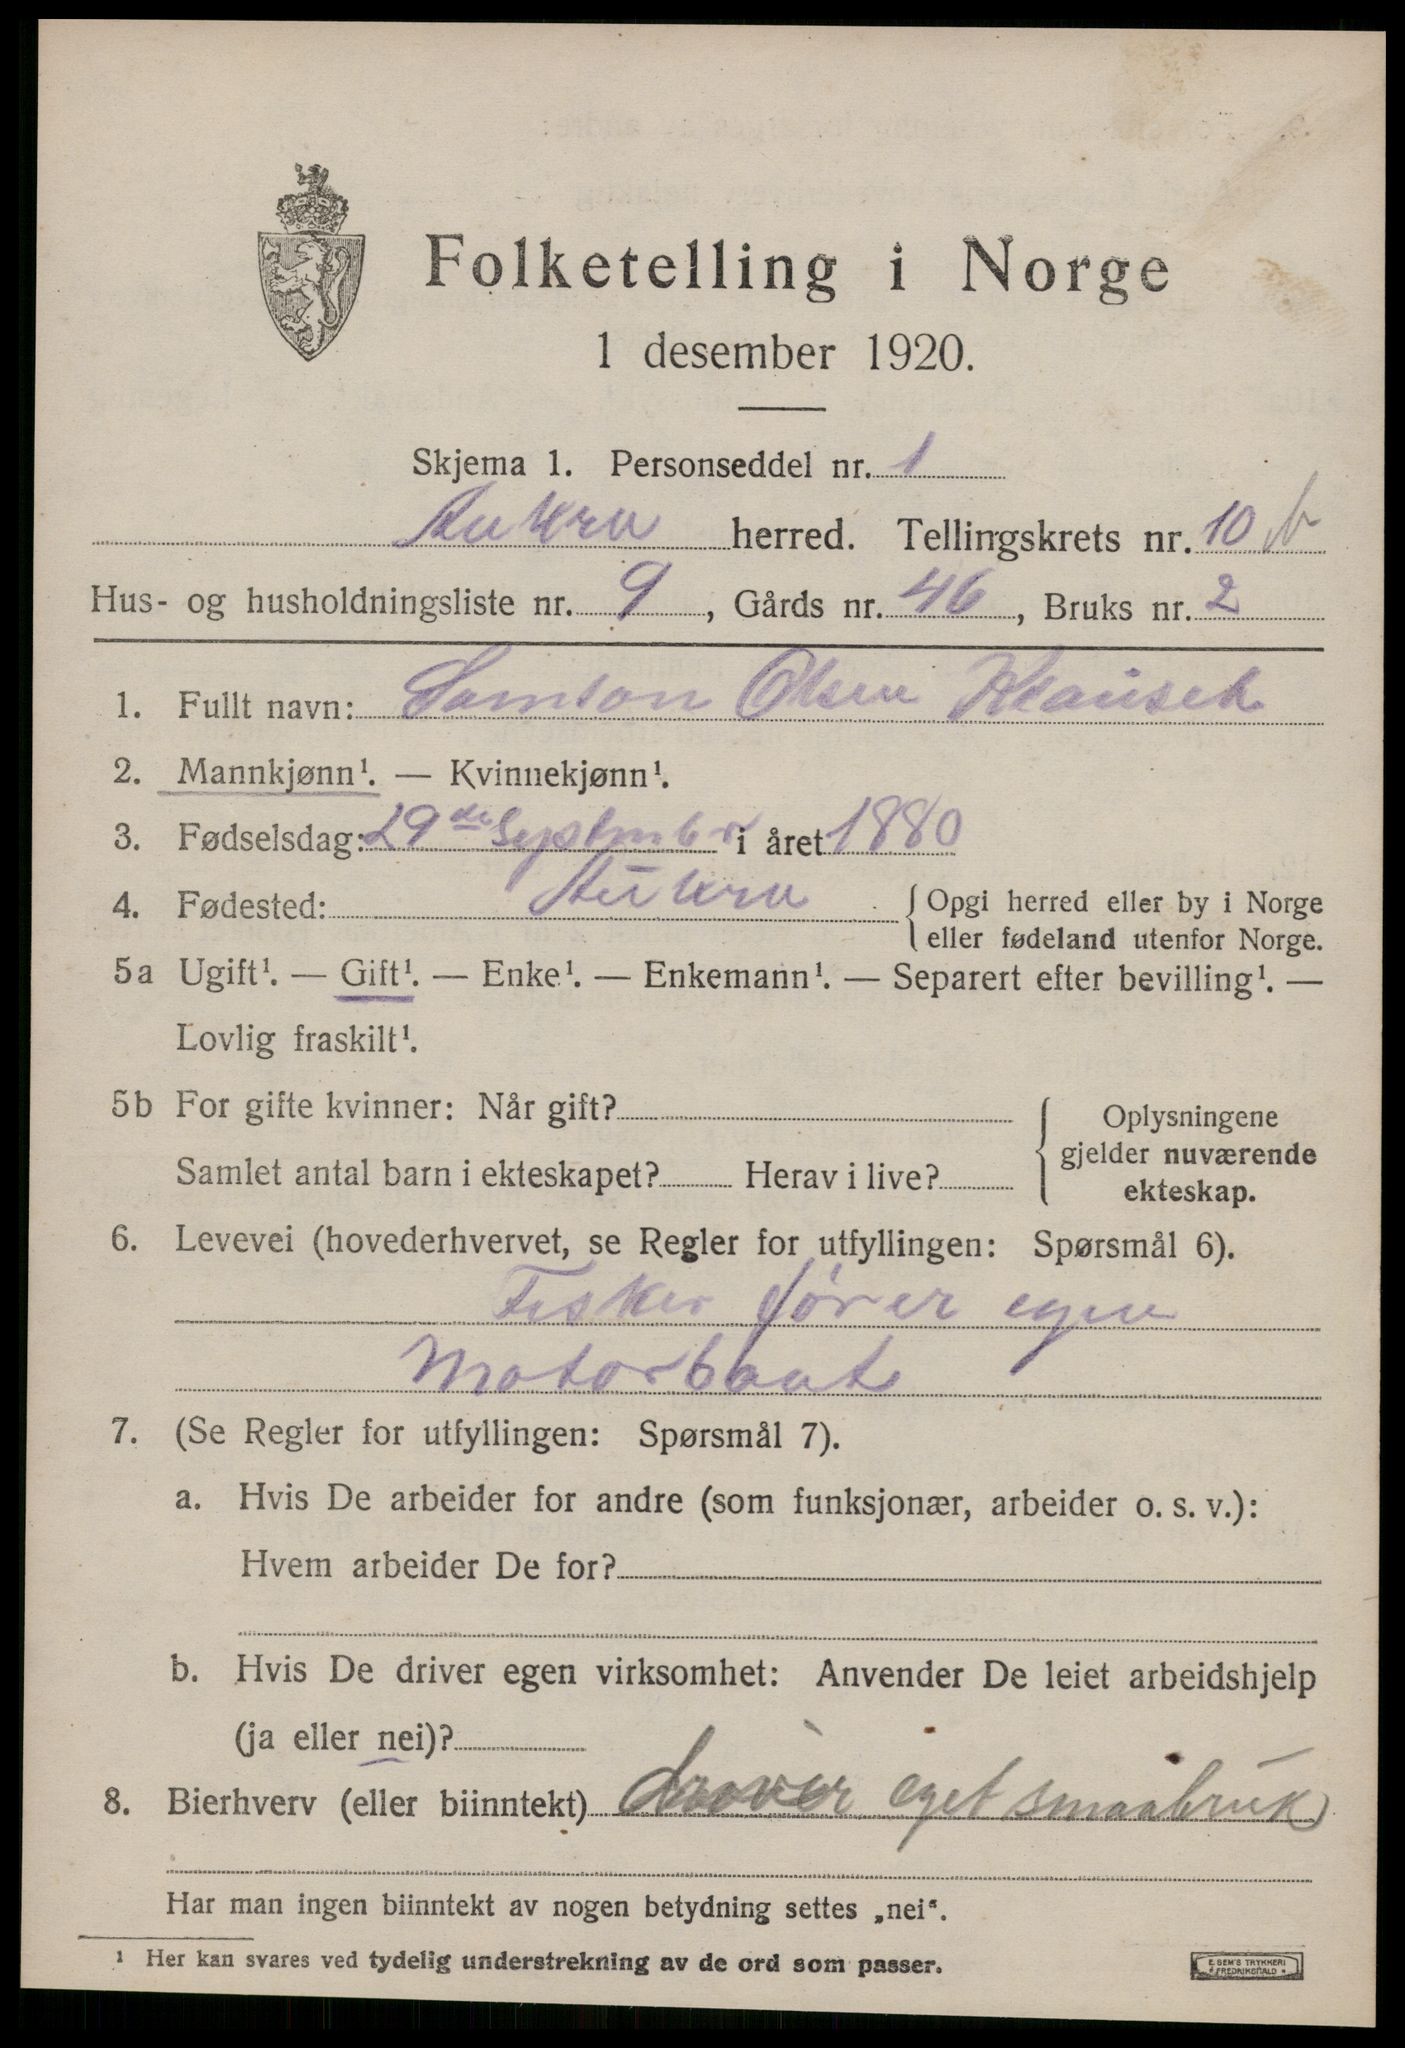 Folketelling i Norge
1 desember 1920.
Skjema 1. Personseddel nr. 1
Aukra herred. Tellingskrets nr. 10 b
Hus- og husholdningsliste nr. 9, Gårds nr. 46, Bruks nr. 2
1. Fullt navn: Samson Olsen
2. Mannkjønn¹. — Kvinnekjønn¹.
3. Fødselsdag: 29de September i året 1880
4. Fødested: Aukra { Opgi herred eller by i Norge
eller fødeland utenfor Norge.
5a Ugift¹. — Gift¹. — Enke¹. — Enkemann¹. — Separert efter bevilling¹. —
Lovlig fraskilt¹.
5b For gifte kvinner: Når gift? { Oplysningene
gjelder nuværende
ekteskap.
Samlet antal barn i ekteskapet? Herav i live?
6. Levevei (hovederhvervet, se Regler for utfyllingen: Spørsmål 6).
Fisker fører egen
Motorbaat
7. (Se Regler for utfyllingen: Spørsmål 7).
a. Hvis De arbeider for andre (som funksjonær, arbeider o. s. v.):
Hvem arbeider De for?
b. Hvis De driver egen virksomhet: Anvender De leiet arbeidshjelp
(ja eller nei)?
8. Bierhverv (eller biinntekt) eget smaabruk
Har man ingen biinntekt av nogen betydning settes „nei“.
¹ Her kan svares ved tydelig understrekning av de ord som passer.
E. SEM'S TRYKKERI
FREDRIKSHALD